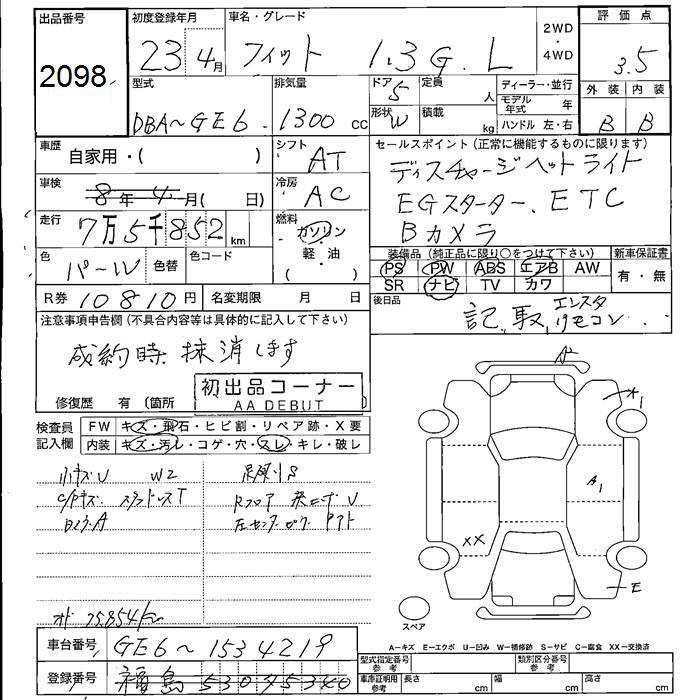 出品番号 初度登録年月 車名・グレード 2WD・4WD 評価点
2098 23 4月 フィット 1.3 G.L 3.5
型式 排気量 ドア 定員 ディーラー・並行 外装 内装
DBA~GE6 1300 cc 5 人 モデル年式 年 B B
形状 W 積載 kg ハンドル 左・右
車歴 自家用・( ) シフト AT セールスポイント (正常に機能するものに限ります)
ディスチャージヘットライト
車検 8年 4月( 日) 冷房 AC EGスターター、ETC
走行 7万5千852 km 燃料 ガソリン・軽・油 ( ) Bカメラ
色 パール 色替 色コード 装備品 (純正品に限り○をつけて下さい) 新車保証書
PS PW ABS エアB AW 有・無
SR ナビ TV カワ
R券 10810円 名変期限 月 日 後日品 記、取、エンスタリモコン
注意事項申告欄 (不具合内容等は具体的に記入して下さい)
成約時抹消します
修復歴 有 (箇所 )
初出品コーナー
AA DEBUT
検査員記入欄 FW キズ・飛石・ヒビ割・リペア跡・X要
内装 キズ・汚レ・コゲ・穴・スレ・キレ・破レ
小キズU W2
A1
XX
E
スペア
A-キズ E-エクボ U-凹み W-補修跡 S-サビ C-腐食 XX-交換済
車台番号 GE6~1534219
登録番号 福島 530
型式指定番号 参考 類別区分番号 参考
車庫証明用 参考 長さ cm 幅 cm 高さ cm